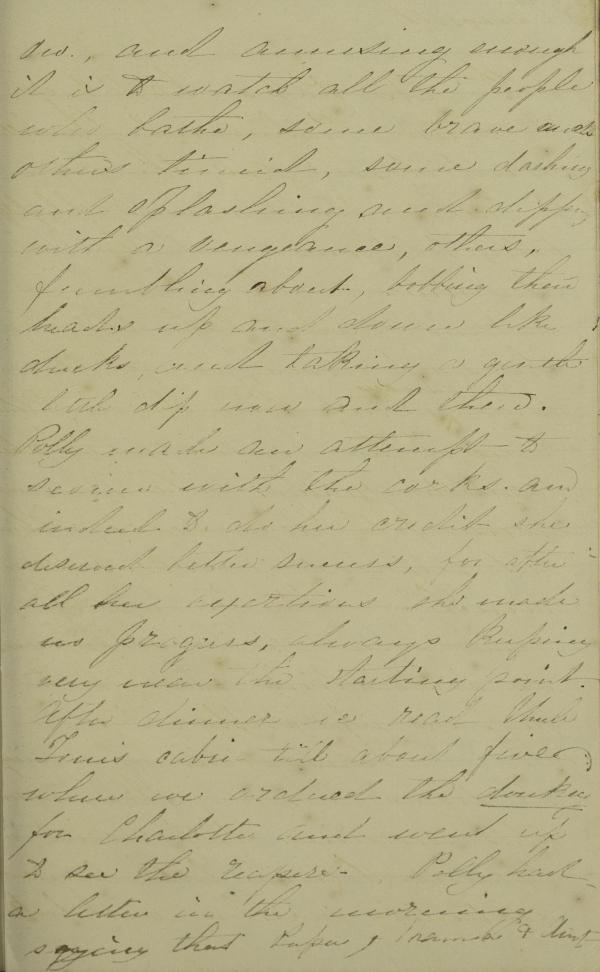 and amusing enough
it is to watch all the people
who bathe, some brave and
others timid, some dashing
and splashing and dipping
with a vengeance, others,
fumbling about, bobbing their
heads up and down like
ducks, and taking a gentle
little dip now and then.
Polly made an attempt to
swim with the corks. and
indeed to do her credit she
deserved better success, for after
all her exertions she made
no progress, always keeping
very near the starting point.
After dinner we read Uncle
Toms cabin till about five
when we ordered the donkey
for Charlotte and went up
to see the reapers. Polly had
a letter in the morning
saying that Papa, &